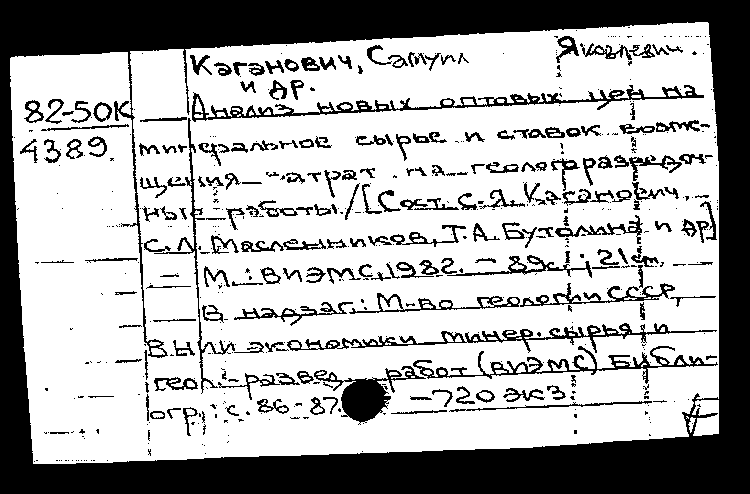 Каганович, Самуил Яковлевич.
и др.
82-50К Анализ новых оптовых цен на
4389. минеральное сырье и ставок возме-
щения затрат на геологоразведоч-
ные работы / [Сост. С.Я. Каганович,
С.Л. Масленников, Т.А. Бутолина и др]
— М.: ВИЭМС, 1982. – 89с.; 21см.
В надзаг.: М-во геологии СССР,
В
экономики минер. сырья и
геол.-развед. работ (ВИЭМС) Библи-
огр.: с. 86-87. – 720 экз.